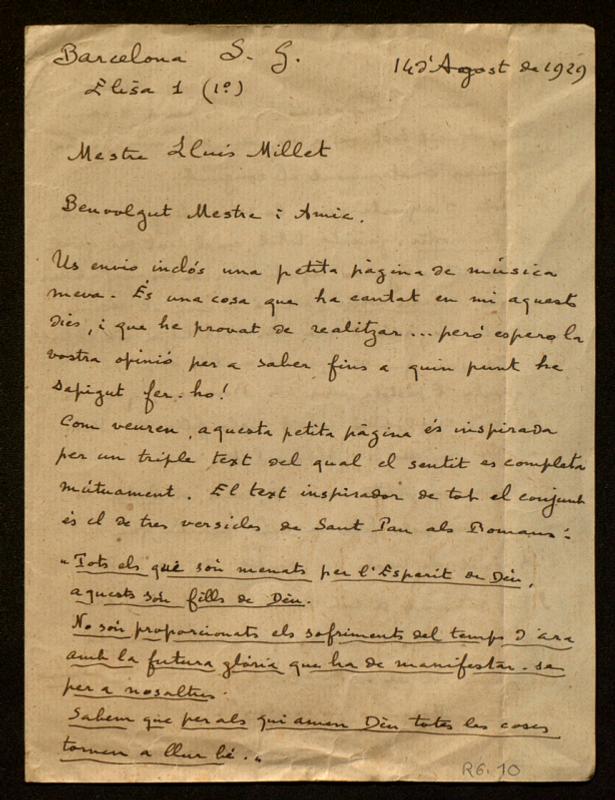 Barcelona S. G.
14 d'Agost de 1929
Elisa 1 (1º)
Mestre Lluís Millet
Benvolgut Mestre i Amic.
Us envio inclós una petita pàgina de música
meva. És una cosa que ha cantat en mi aquests
dies, i que he provat de realitzar... però espero la
vostra opinió per a saber fins a quin punt he
sapigut fer-ho!
Com veuren, aquesta petita pàgina és inspirada
per un triple text del qual el sentit es completa
mútuament. El text inspirador de tot el conjunt
és el de tres versicles de Sant Pau als Romans:
"Tots els que són menats per l'Esperit de Déu,
aquests són fills de Déu.
No són proporcionats els sofriments del temps d'ara
amb la futura glòria que ha de manifestar-se
per a nosaltres.
Sabem que per als qui amen Déu totes les coses
tornen a llur bé."
R6.10